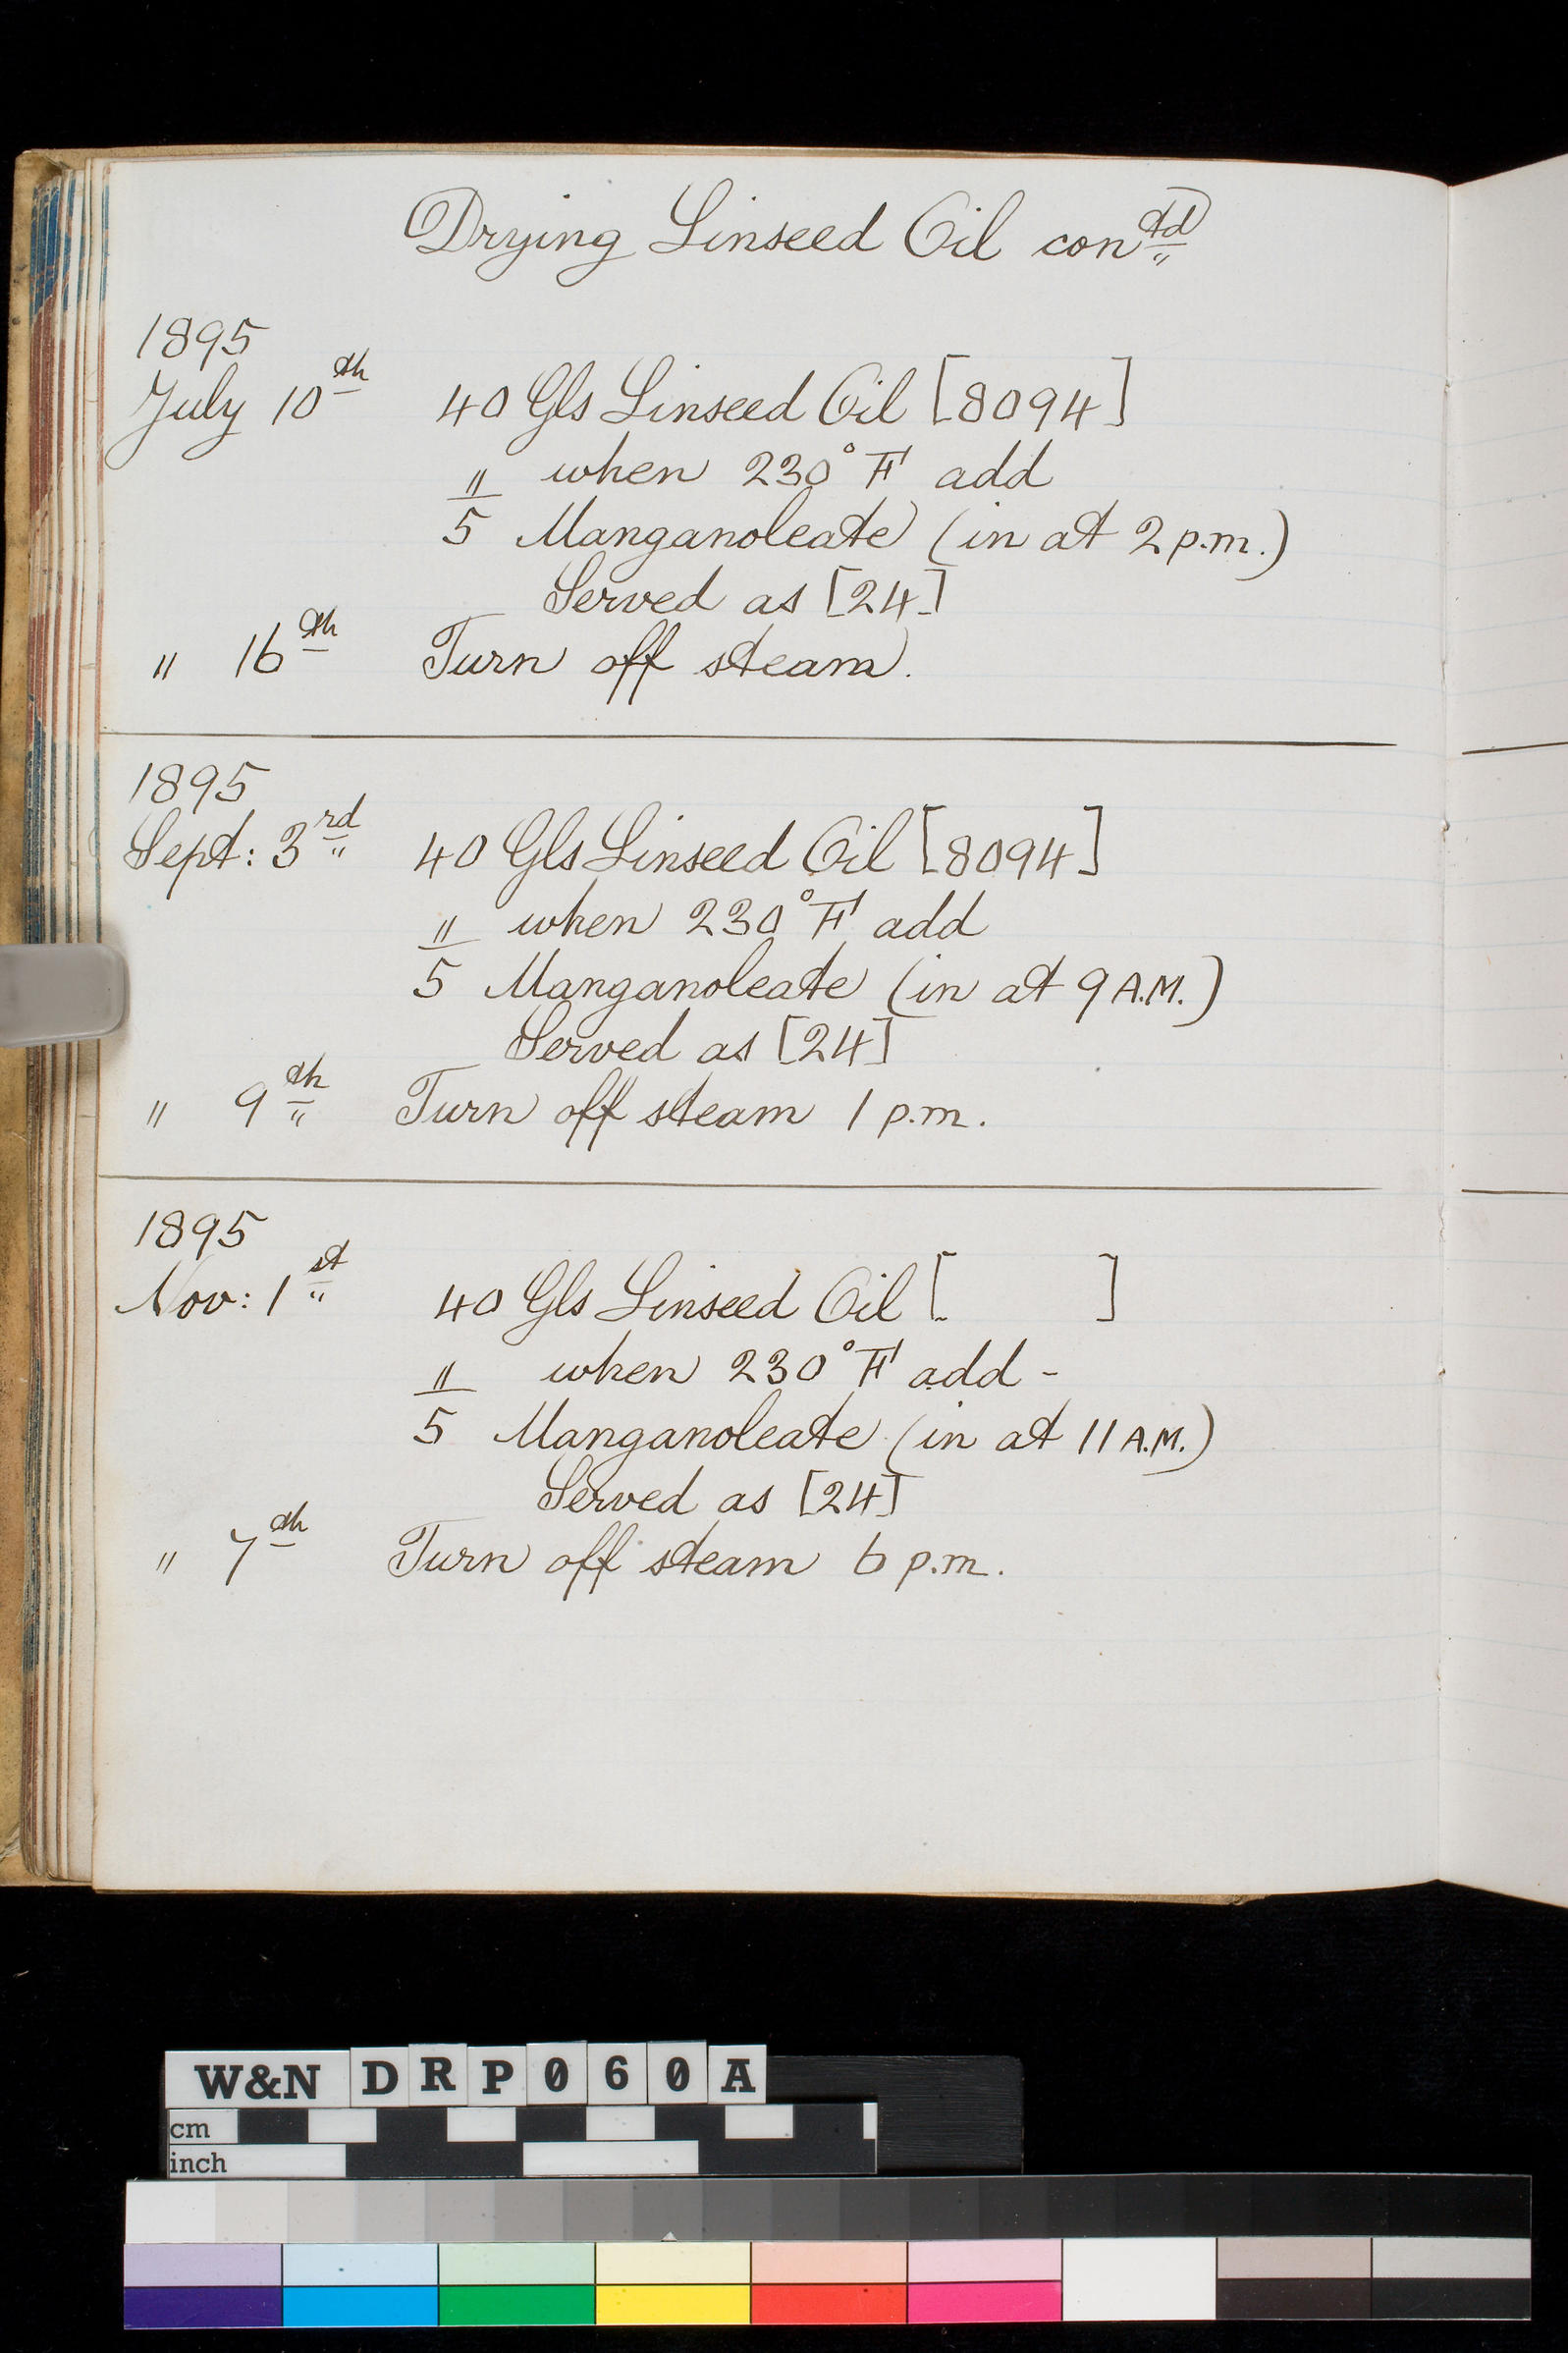 Drying Linseed Oil contd
1895
July 10th 40 Gls Linseed Oil [8094]
" when 230°F add
5 Manganoleate (in at 2 p.m.)
Served as [24]
" 16th Turn off steam.
1895
Sept: 3rd 40 Gls Linseed Oil [8094]
" when 230°F add
5 Manganoleate (in at 9 A.M.)
Served as [24]
" 9th Turn off steam 1 p.m.
1895
Nov: 1st 40 Gls Linseed Oil [ ]
" when 230°F add -
5 Manganoleate (in at 11 A.M.)
Served as [24]
" 7th Turn off steam 6 p.m.
W&N DRP060A
cm
inch